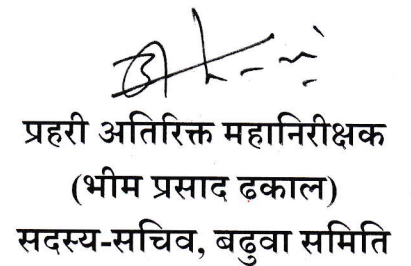 प्रहरी अतिरिक्त महानिरीक्षक
(भीम प्रसाद ढकाल)
सदस्य-सचिव, बढुवा समिति